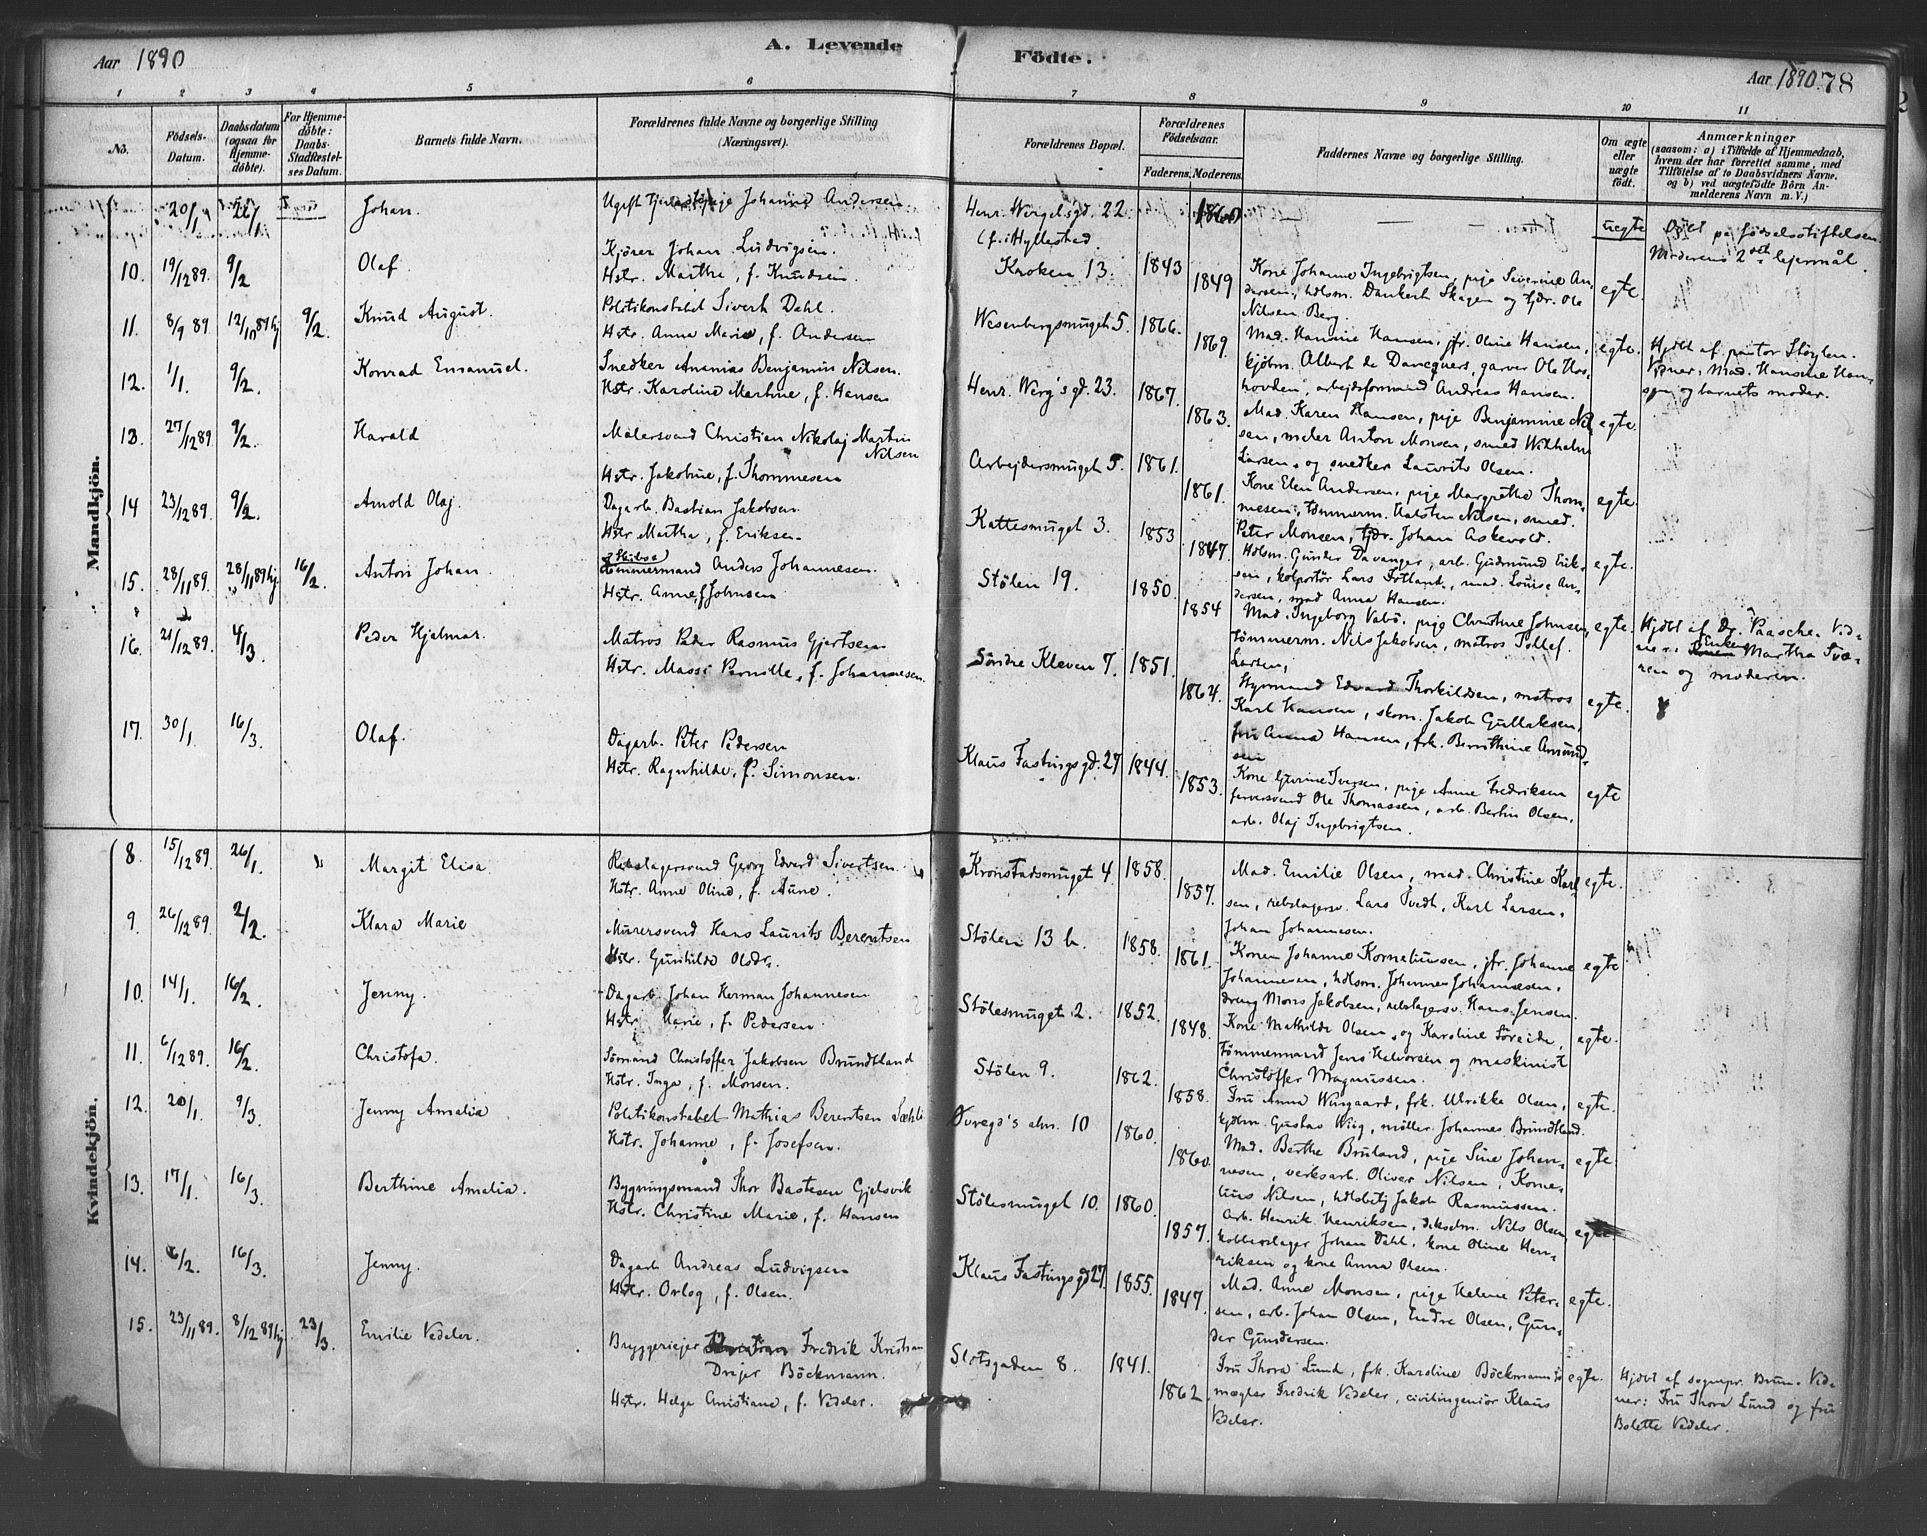 Aar 1890
A. Levende
Födte.
Aar 1890. 78
1 2 3 4 5 6 7 8 9 10 11
No.
Födsels-Datum.
Daabsdatum (ogsaa for Hjemmedöbte).
For Hjemmedöbte: Daabs-Stadfæstelses Datum.
Barnets fulde Navn.
Forældrenes fulde Navne og borgerlige Stilling (Næringsvei).
Forældrenes Bopæl.
Forældrenes Födselsaar.
Faderens. Moderens.
Faddernes Navne og borgerlige Stilling.
Om ægte eller uægte födt.
Anmærkninger
(saasom: a) i Tilfælde af Hjemmedaab, hvem der har forrettet samme, med Tilföielse af to Daabsvidners Navne, og b) ved uægtefödte Börn Anmelderens Navn m. V.)
Mandkjön.
20/1 Johan. Ugift pige Johanne Andersen Henr. Wergelsgd. 22. (f. i Hyllestad. 1860 uegte Død på fødselsstiftelsen. Moderens 2det lejermål.
10. 19/12 89. 9/2 Olaf. Kjører Johan Ludvigsen.
Hstr. Marthe, f. Knudsen.
Kroken 13. 1843 1849 Kone Johanne Ingebrigtsen, pige Severine An-
dersen, hdlsm. Dankert Skagen og fjdr. Ole
Nilsen Berg. egte.
11. 8/9 89. 12/10 89 hj 9/2. Knud August. Politikonstabel Sivert Dahl.
Hstr. Anna Marie, f. Andersen
Wesenbergsmuget 5. 1866. 1869. Mad. Hansine Hansen, jfr. Oline Hansen,
kjøbm. Albert de Dancquers, garver Ole Hos-
hovden, arbejdsformand Andreas Hansen. egte. Hjdbt af pastor Støylen.
Vidner: Mad. Hansine Han-
sen og barnets moder.
12. 1/1. 9/2. Konrad Emanuel. Snedker Ananias Benjamin Nilsen.
Hstr. Karoline Martine, f. Hansen
Henr. Werg's gd. 23. 1867. 1863. Mad. Karen Hansen, pige Benjamine Nil-
sen, maler Anton Monsen, smed Wilhelm
Larsen, og snedker Laurits Olsen. egte.
13. 27/12 89. 9/2. Harald Malersvend Christian Nikolaj Martin
Nilsen
Hstr. Jakobine, f. Thommesen
Arbejdersmuget 5. 1861. 1861. Kone Elen Andersen, pige Margrethe Thom-
mesen, tømmerm. Halsten Nilsen, smed.
Peter Monsen, fjdr. Johan Askevold. egte.
14 23/12 89. 9/2. Arnold Olaj Dagarb. Bastian Jakobsen
Hstr Martha, f. Eriksen
Kattesmuget 3. 1853 1847. Hdlsm. Gunder Davanger, arb. Gudmund Erik-
sen, kolportør Lars Fotland, mad. Louise An-
dersen, mad Anna Hansen. egte.
15. 28/11 89. 28/11 89 hj 16/2. Anton Johan. Tømmermand Anders Johannesen.
Hstr. Anne, f. Johnsen
Stølen 19. 1850. 1854 Mad. Ingeborg Vabø, pige Christine Johnsen,
tømmerm. Nils Jakobsen, matros Tollef.
Larsen, egte. Hjdbt af Dr. Paasche. Vid-
ner: Enken Martha Svæ-
ren og moderen.
16. 21/12 89. 4/3. Peder Hjelmar. Matros Peder Rasmus Gjertsen
Hstr. Massi Pernille, f. Johannesen.
Søndre Kleven 7. 1851. 1864. Styrmand Edvard Thorkildsen, matros
Karl Hansen, skom. Jakob Gullaksen,
fru Anna Hansen, frk. Bernthine Amund-
sen egte.
17. 30/1. 16/3. Olaf. Dagarb. Peter Pedersen
Hstr. Ragnhilde, f. Simonsen.
Klaus Fastingsgd. 27 1844. 1853. Kone Gurine Iversen, pige Anne Fredriksen
farversvend Ole Thomassen, arb. Bertin Olsen,
arb. Olaj Ingebrigtsen. egte
Kvindekjön.
8. 15/12 89. 26/1. Margit Elisa. Rebslagersvend Georg Edvard Sivertsen.
Hstr. Anne Olind, f. Aune.
Kronstadsmuget 4. 1858. 1857. Mad. Emilie Olsen, mad. Christine Karl-
sen, rebslagersv. Lars Tvedt, Karl Larsen,
Johan Johannesen. egte.
9. 26/12 89. 2/2. Klara Marie Murersvend Hans Laurits Berentsen
Hstr. Gunhilde Olsdr.
Stølen 13 b. 1858. 1861. Konen Johanne Korneliussen, jfr. Johanne
Johannesen, hdlsm. Johannes Johannesen,
dreng Mons Jakobsen, rebslagersv. Hans Jensen. egte
10. 14/1. 16/2. Jenny. Dagarb. Johan Herman Johannesen
Hstr Marie, f. Pedersen.
Stølesmuget 2. 1852. 1848. Kone Mathilde Olsen, og Karoline Søreide,
tømmermand Jens Halvorsen og maskinist
Christoffer Magnussen. egte.
11. 6/12 89. 16/2. Christofa. Sømand Christoffer Jakobsen Brundtland
Hstr. Inga, f. Monsen.
Stølen 9. 1862. 1858. Fru Anna Wingaard, frk. Ulrikke Olsen,
kjøbm. Gustav Wiig, møller Johannes Brundtland. egte.
12. 20/1. 9/3. Jenny Amalia Politikonstabel Mathias Berentsen Sæhle
Hstr. Johanne, f. Josefsen.
Øvregd's alm. 10 1860. 1860 Mad. Berthe Bruland, pige Sine Johan-
nesen, verksarb. Oliver Nilsen, Korne-
lius Nilsen, hdlsbetj Jakob Rasmussen. egte.
13. 17/1. 16/3. Berthine Amalia. Bygningsmand Thor Bastesen Gjelsvik
Hstr. Christine Marie, f. Hansen
Stølesmuget 10. 1860. 1857. Arb. Henrik Henriksen, deksdm. Nils Olsen
kobberslager Johan Dahl, kone Oline Hen-
riksen og kone Anna Olsen. egte.
14. 6/2. 16/3. Jenny. Dagarb Andreas Ludvigsen
Hstr. Orlog, f. Olsen.
Klaus Fastingsgd 27. 1855. 1847. Mad. Anne Monsen, pige Helene Peter-
sen, arb. Johan Olsen, Endre Olsen, Gun-
der Gundersen. egte.
15. 23/11 89. 8/12 89 hj 23/3. Emilie Vedeler. Bryggeriejer Fredrik Kristian
Drejer Böckmann.
Hstr. Helga Christiane, f. Vedeler.
Slotsgaden 8. 1841. 1862 Fru Thora Lund, frk. Karoline Böckmann
mægler Fredrik Vedeler, civilingeniør Klaus
Vedeler. egte. Hjdbt af sognepr. Brun. Vid-
ner: Fru Thora Lund og fru
Bolette Vedeler.